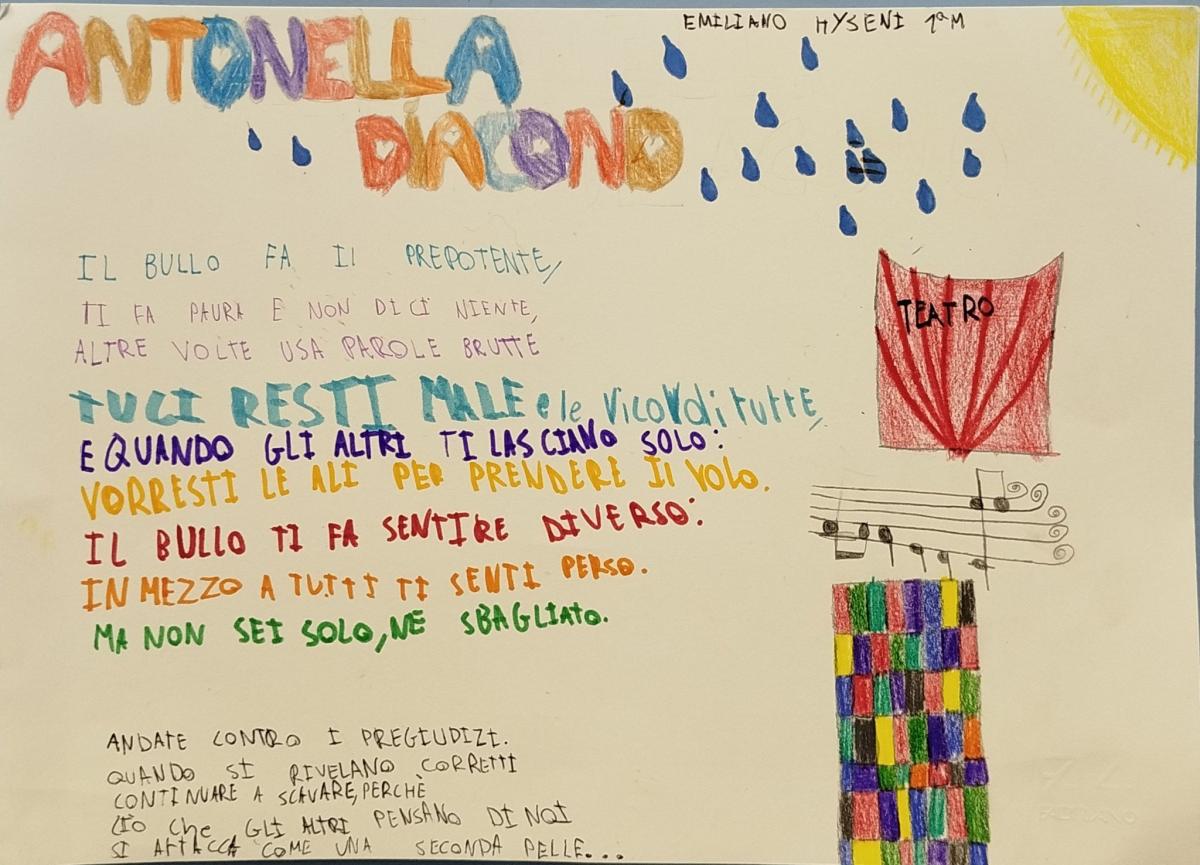 EMILIANO HYSENI 1ªM
ANTONELLA
DIACONO
IL BULLO FA Il PREPOTENTE,
TI FA PAURA E NON DICI NIENTE,
ALTRE VOLTE USA PAROLE BRUTTE
TU CI RESTI MALE e le ricordi TUTTE,
E QUANDO GLI ALTRI TI LASCIANO SOLO:
VORRESTI LE ALI PER PRENDERE Il VOLO.
IL BULLO TI FA SENTIRE DIVERSO:
IN MEZZO A TUTTI TI SENTI PERSO.
MA NON SEI SOLO, NÉ SBAGLIATO.
TEATRO
ANDATE CONTRO I PREGIUDIZI.
QUANDO SI RIVELANO CORRETTI
CONTINUARE A SCAVARE, PERCHÈ
CIO che GLI ALTRI PENSANO DI NOI
SI ATTACCA COME UNA SECONDA PELLE...
FABRIANO